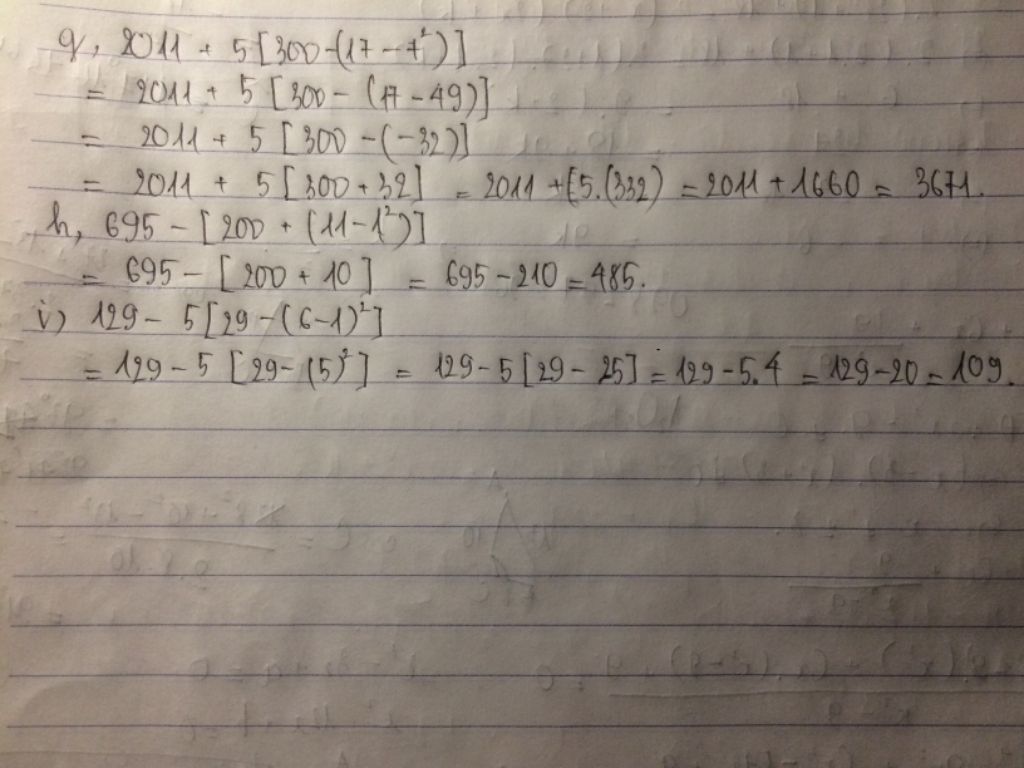 g, 2011 + 5[300-(17-7²)]
= 2011 + 5 [300 - (17-49)]
= 2011 + 5 [300 -(-32)]
= 2011 + 5[300+32] = 2011 +[5.(332) = 2011 + 1660 = 3671.
h, 695 - [200 + (11-1²)]
= 695 - [200 + 10] = 695 - 210 = 485.
i) 129 - 5[29 -(6-1)²]
= 129 - 5 [29-(5)²] = 129 - 5[29 - 25] = 129 - 5.4 = 129 - 20 = 109.